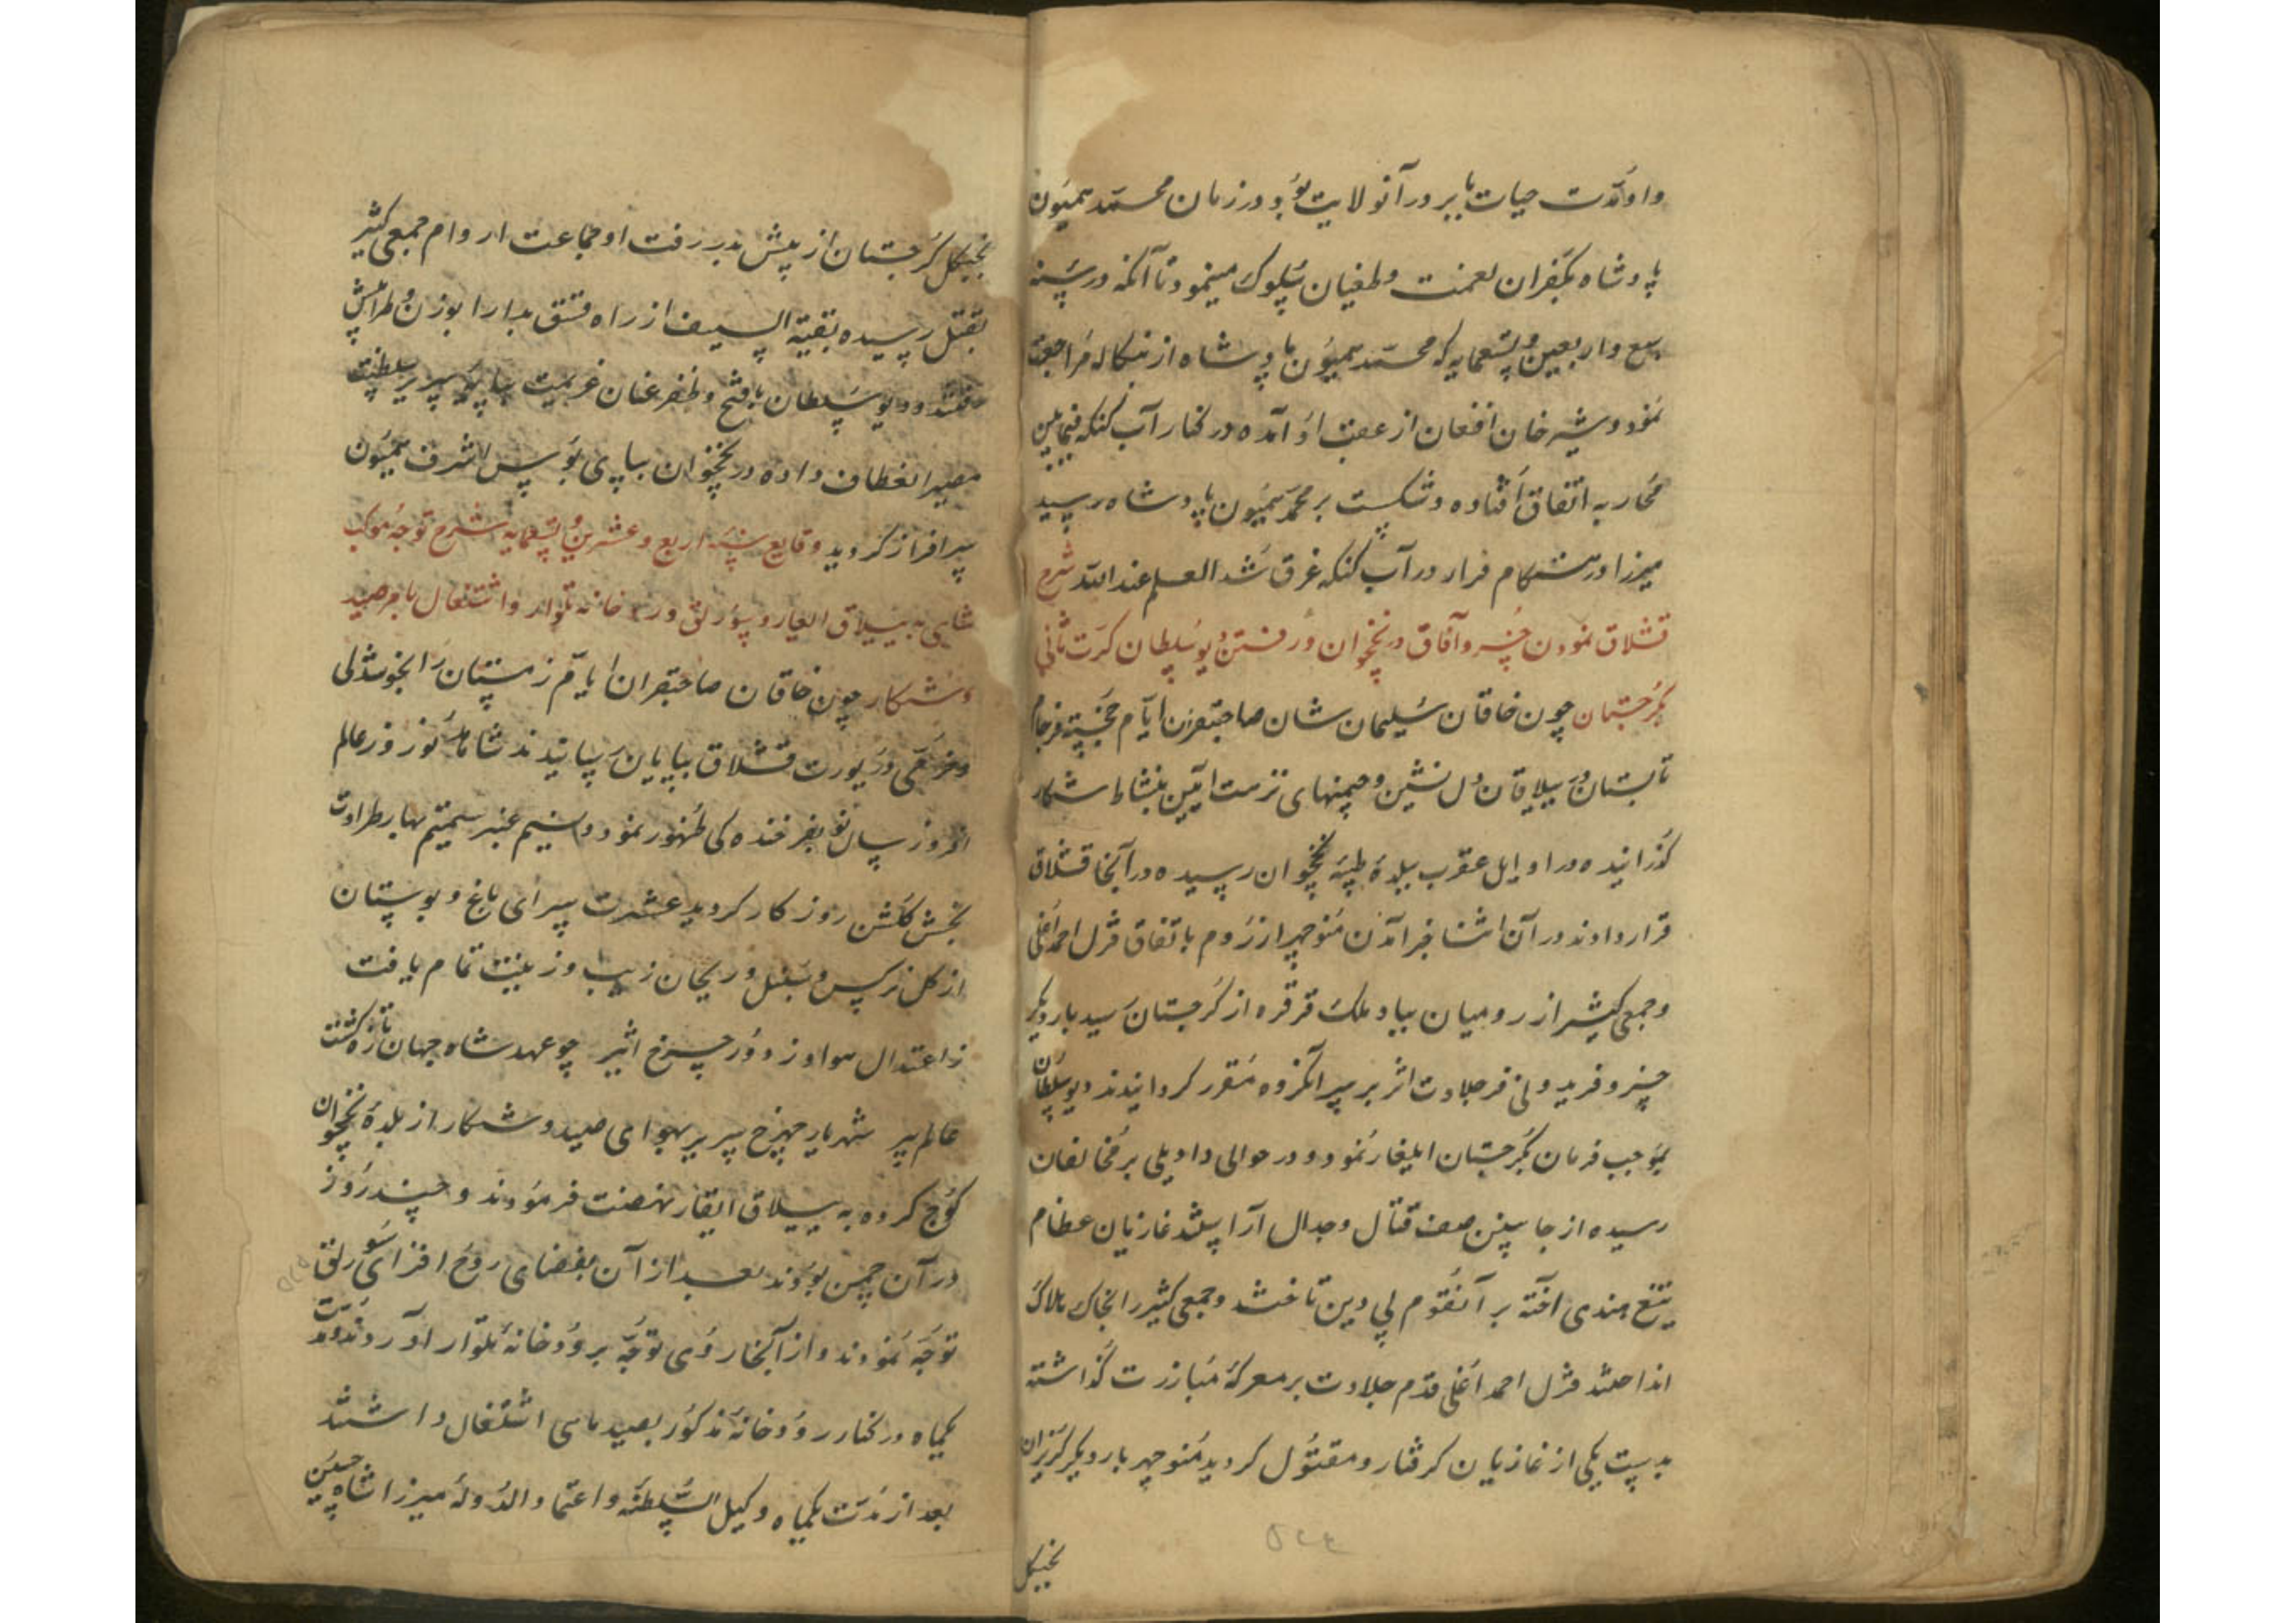 و او مدت حیات بابر در آنولایت بود و در زمان محمد همیون
پادشاه بکفران نعمت و طغیان سلوک مینمود تا آنکه در سنه
سبع و اربعین و تسعمایه که محمد همیون پادشاه از بنکاله مراجعت
نمود و شیر خان افغان از عقب او آمده در کنار آب کنکه فیمابین
محاربه اتفاق افتاده و شکست بر محمد همیون پادشاه رسید
میرزا در هنکام فرار در آب کنکه غرق شد العلم عند الله شرح
قشلاق نمودن خسرو آفاق در نخچوان و رفتن دیو سلطان کرت ثانی
بکرجستان چون خاقان سلیمان شان صاحبقران ایام خجسته فرجام
تابستان در ییلاقان دل نشین و چمنهای نزهت آیین بنشاط شکار
کذرانیده در اوایل عقرب ببلده طیبه نخچوان رسیده در آنجا قشلاق
قرار دادند در آن اثنا خبر آمدن منوچهر از روم باتفاق قزل احمد اغلی
و جمعی کثیر از رومیان بباد ملک قرقره از کرجستان رسید بار دیکر
خسرو فریدونی فر جلادت اثر بر سر آنکروه مقرر کردانیدند دیو سلطان
بموجب فرمان بکرجستان ایلغار نمود و در حوالی دادیلی بر مخالفان
رسیده از جانبین صف قتال و جدال آراستند غازیان عظام
تیغ هندی آخته بر آنقوم بی دین تاختند و جمعی کثیر را بخاک هلاک
انداختند قزل احمد اغلی قدم جلادت بر معرکه مبارزت کذاشته
بدست یکی از غازیان کرفتار و مقتول کردید منوچهر بار دیکر کریزان
بجنکل
۵۲۴
بجنکل کرجستان از پیش بدر رفت او جماعت اروام جمعی کثیر
بقتل رسیده بقیة السیف از راه قشق بدارا بوزن و طرابلش
رفتند و دیو سلطان با فتح و ظفر عنان عزیمت بپایه سریر سلطنت
مصیر انعطاف داده در نخچوان بپای بوس اشرف همیون
سرافراز کردید وقایع سنه اربع و عشرین و تسعمایه شرح توجه موکب
شاهی به ییلاق القار و سورلق و رودخانه تلوار و اشتغال بامر صید
و شکار چون خاقان صاحبقران ایام زمستان را بخوشدلی
و خرمی در یورت قشلاق بپایان رسانیدند شاهد نوروز عالم
افروز سال نو بفرخندکی ظهور نمود و نسیم عنبر شمیم بهار طراوت
بخش کلشن روزکار کردید عشرت سرای باغ و بوستان
از کل نرکس و سنبل و ریحان زیب و زینت تمام یافت
ز اعتدال هوا و ز دور چرخ اثیر چو عهد شاه جهان تازه کشت
عالم پیر شهریار چرخ سریر بهوای صید و شکار از بلده نخچوان
کوچ کرده به ییلاق ایقار نهضت فرمودند و چند روز
در آن چمن بودند بعد از آن بفضای روح افزای سورلق
توجه نمودند و از آنجا روی توجه برودخانه تلوار آوردند و مدت
یکماه در کنار رودخانه مذکور بصید ماهی اشتغال داشتند
بعد از مدت یکماه وکیل السلطنه و اعتماد الدوله میرزا شاه حسین
۵۲۵